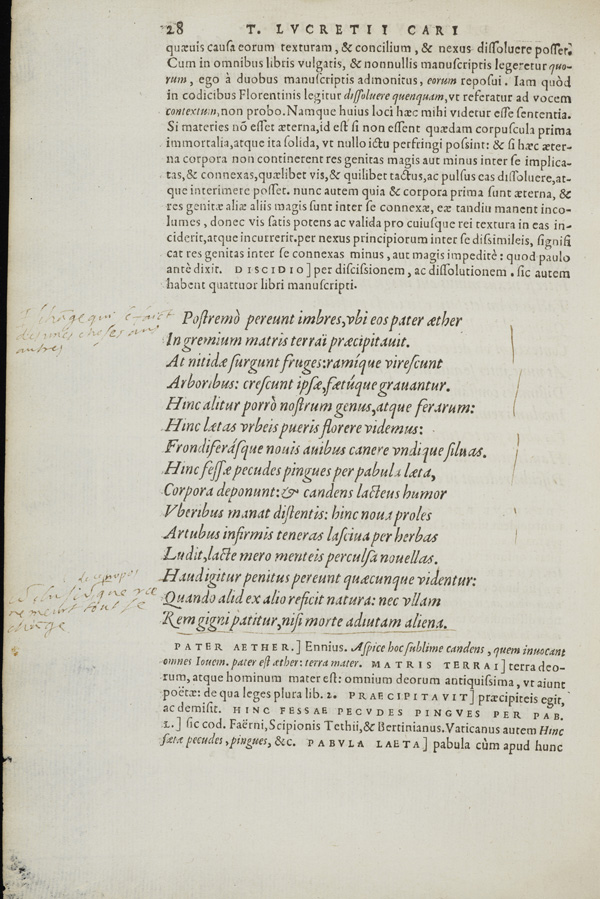 28 T. LVCRETII CARI
quæuis causa eorum texturam, & concilium, & nexus dissoluere posset.
Cum in omnibus libris vulgatis, & nonnullis manuscriptis legeretur quo-
rum, ego à duobus manuscriptis admonitus, eorum reposui. Iam quòd
in codicibus Florentinis legitur dissoluere quenquam, vt referatur ad vocem
contextum, non probo. Namque huius loci hæc mihi videtur esse sententia.
Si materies nõ esset æterna, id est si non essent quædam corpuscula prima
immortalia, atque ita solida, vt nullo ictu perfringi possint: & si hæc æter-
na corpora non continerent res genitas magis aut minus inter se implica-
tas, & connexas, quælibet vis, & quilibet tactus, ac pulsus eas dissoluere, at-
que interimere posset. nunc autem quia & corpora prima sunt æterna, &
res genitæ aliæ aliis magis sunt inter se connexæ, eæ tandiu manent inco-
lumes, donec vis satis potens ac valida pro cuiusque rei textura in eas in-
ciderit, atque incurrerit. per nexus principiorum inter se dissimileis, signifi
cat res genitas inter se connexas minus, aut magis impeditè: quod paulo
antè dixit. DISCIDIO] per discissionem, ac dissolutionem. sic autem
habent quattuor libri manuscripti.
Postremò pereunt imbres, vbi eos pater æther
In gremium matris terraï præcipitauit.
At nitidæ surgunt fruges: ramíque virescunt
Arboribus: crescunt ipsæ, fætúque grauantur.
Hinc alitur porrò nostrum genus, atque ferarum:
Hinc lætas vrbeis pueris florere videmus:
Frondiferásque nouis auibus canere vndique siluas.
Hinc fessæ pecudes pingues per pabula læta,
Corpora deponunt: & candens lacteus humor
Vberibus manat distentis: hinc noua proles
Artubus infirmis teneras lasciua per herbas
Ludit, lacte mero menteis perculsa nouellas.
Haud igitur penitus pereunt quæcunque videntur:
Quando alid ex alio reficit natura: nec vllam
Rem gigni patitur, nisi morte adiutam aliena.
PATER AETHER.] Ennius. Aspice hoc sublime candens, quem inuocant
omnes Iouem. pater est æther: terra mater. MATRIS TERRAI] terra deo-
rum, atque hominum mater est: omnium deorum antiquissima, vt aiunt
poëtæ: de qua leges plura lib. 2. PRAECIPITAVIT] præcipiteis egit,
ac demisit. HINC FESSAE PECVDES PINGVES PER PAB.
L.] sic cod. Faërni, Scipionis Tethii, & Bertinianus. Vaticanus autem Hinc
fætæ pecudes, pingues, &c. PABVLA LAETA] pabula cùm apud hunc